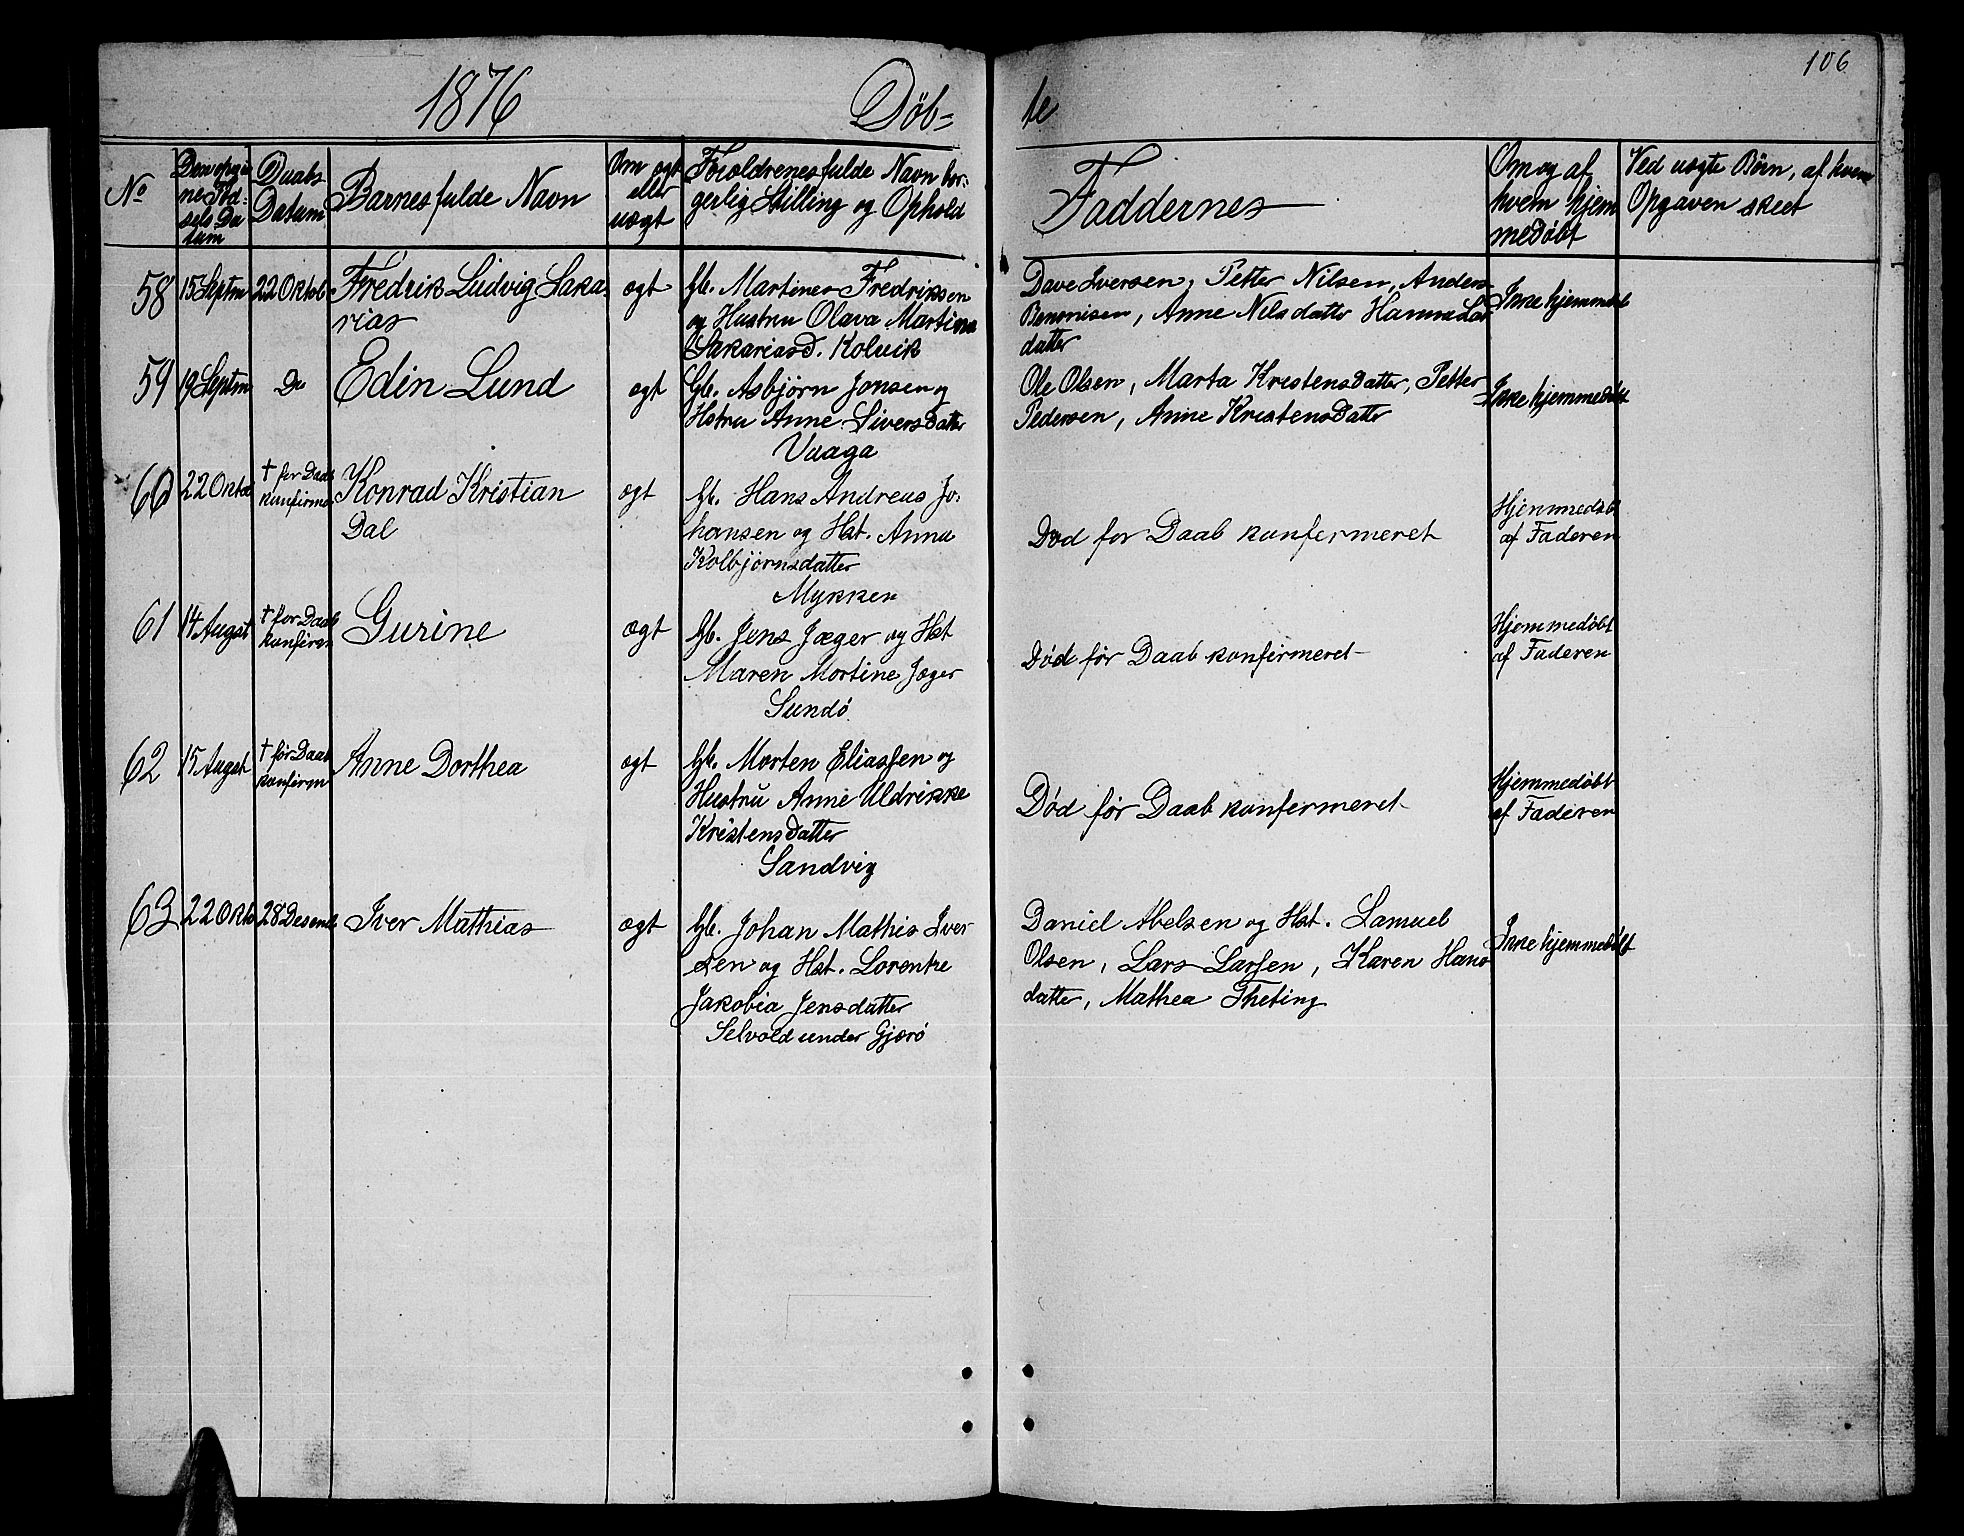 106
1876 Döb= te
No
Den opgiv
ne Fød=
sels Da
tum
Daabs
Datum
Barnesfulde Navn
Om ægt
eller
uægt
Foroldrenesfulde Navn bor=
gerlig Stilling og Ophold
Faddernes
Om og af
hvem hjem
medöbt
Ved uægte Børn, af hvem
Opgaven skeet
58 15 Septm 22 Oktob Fredrik Ludvig Saka=
rias
ægt
Gb. Martines Fredriksen
og Hustru Olava Martina
Sakariasd. Kolvik
Dave Iversen, Petter Nilsen, Anders
Benonisen, Anne Nilsdatter Hanna Lars
datter
Ikke hjemmed
59 19 Septm Do Edin Lund
ægt
Gb. Asbjørn Jonsen og
Hstru Anne Siversdatter
Vaaga
Ole Olsen, Marta Kristensdatter, Petter
Pedersen, Anne Kristensdatter
Ikke hjemmedöbt
60 22 Oktb † før Daab
konfirme
Konrad Kristian
Dal
ægt
Gb. Hans Andreas Jo=
hansen og Hst. Anna
Kolbjørnsdatter
Mykken
Død før Daab konfermeret
Hjemmedöbt
af Faderen
61 14 August † før Daab
konfirm
Gurine
ægt
Gb. Jens Jæger og Hst
Maren Mortine Jæger
Sundö
Död før Daab konfirmeret
Hjemmedöbt
af Faderen
62 15 August † før Daab
konfirm
Anne Dorthea
ægt
Gb. Morten Eliassen og
Hustru Anne Uldrikke
Kristensdatter
Sandvig
Död før Daab konfermeret
Hjemmedöbt
af Faderen
63 22 Oktb 28 Desemb Iver Mathias
ægt
Gb. Johan Mathis Iver
sen og Hst. Lorentze
Jakobia Jensdatter
Selvold under Gjærö
Daniel Abelsen og Hst. Samuel
Olsen, Lars Larsen, Karen Hans
datter, Mathea Theting
Ikke hjemmedöbt